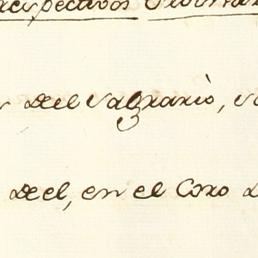 respectivos
del Sagrario, s
del, en el Coro d